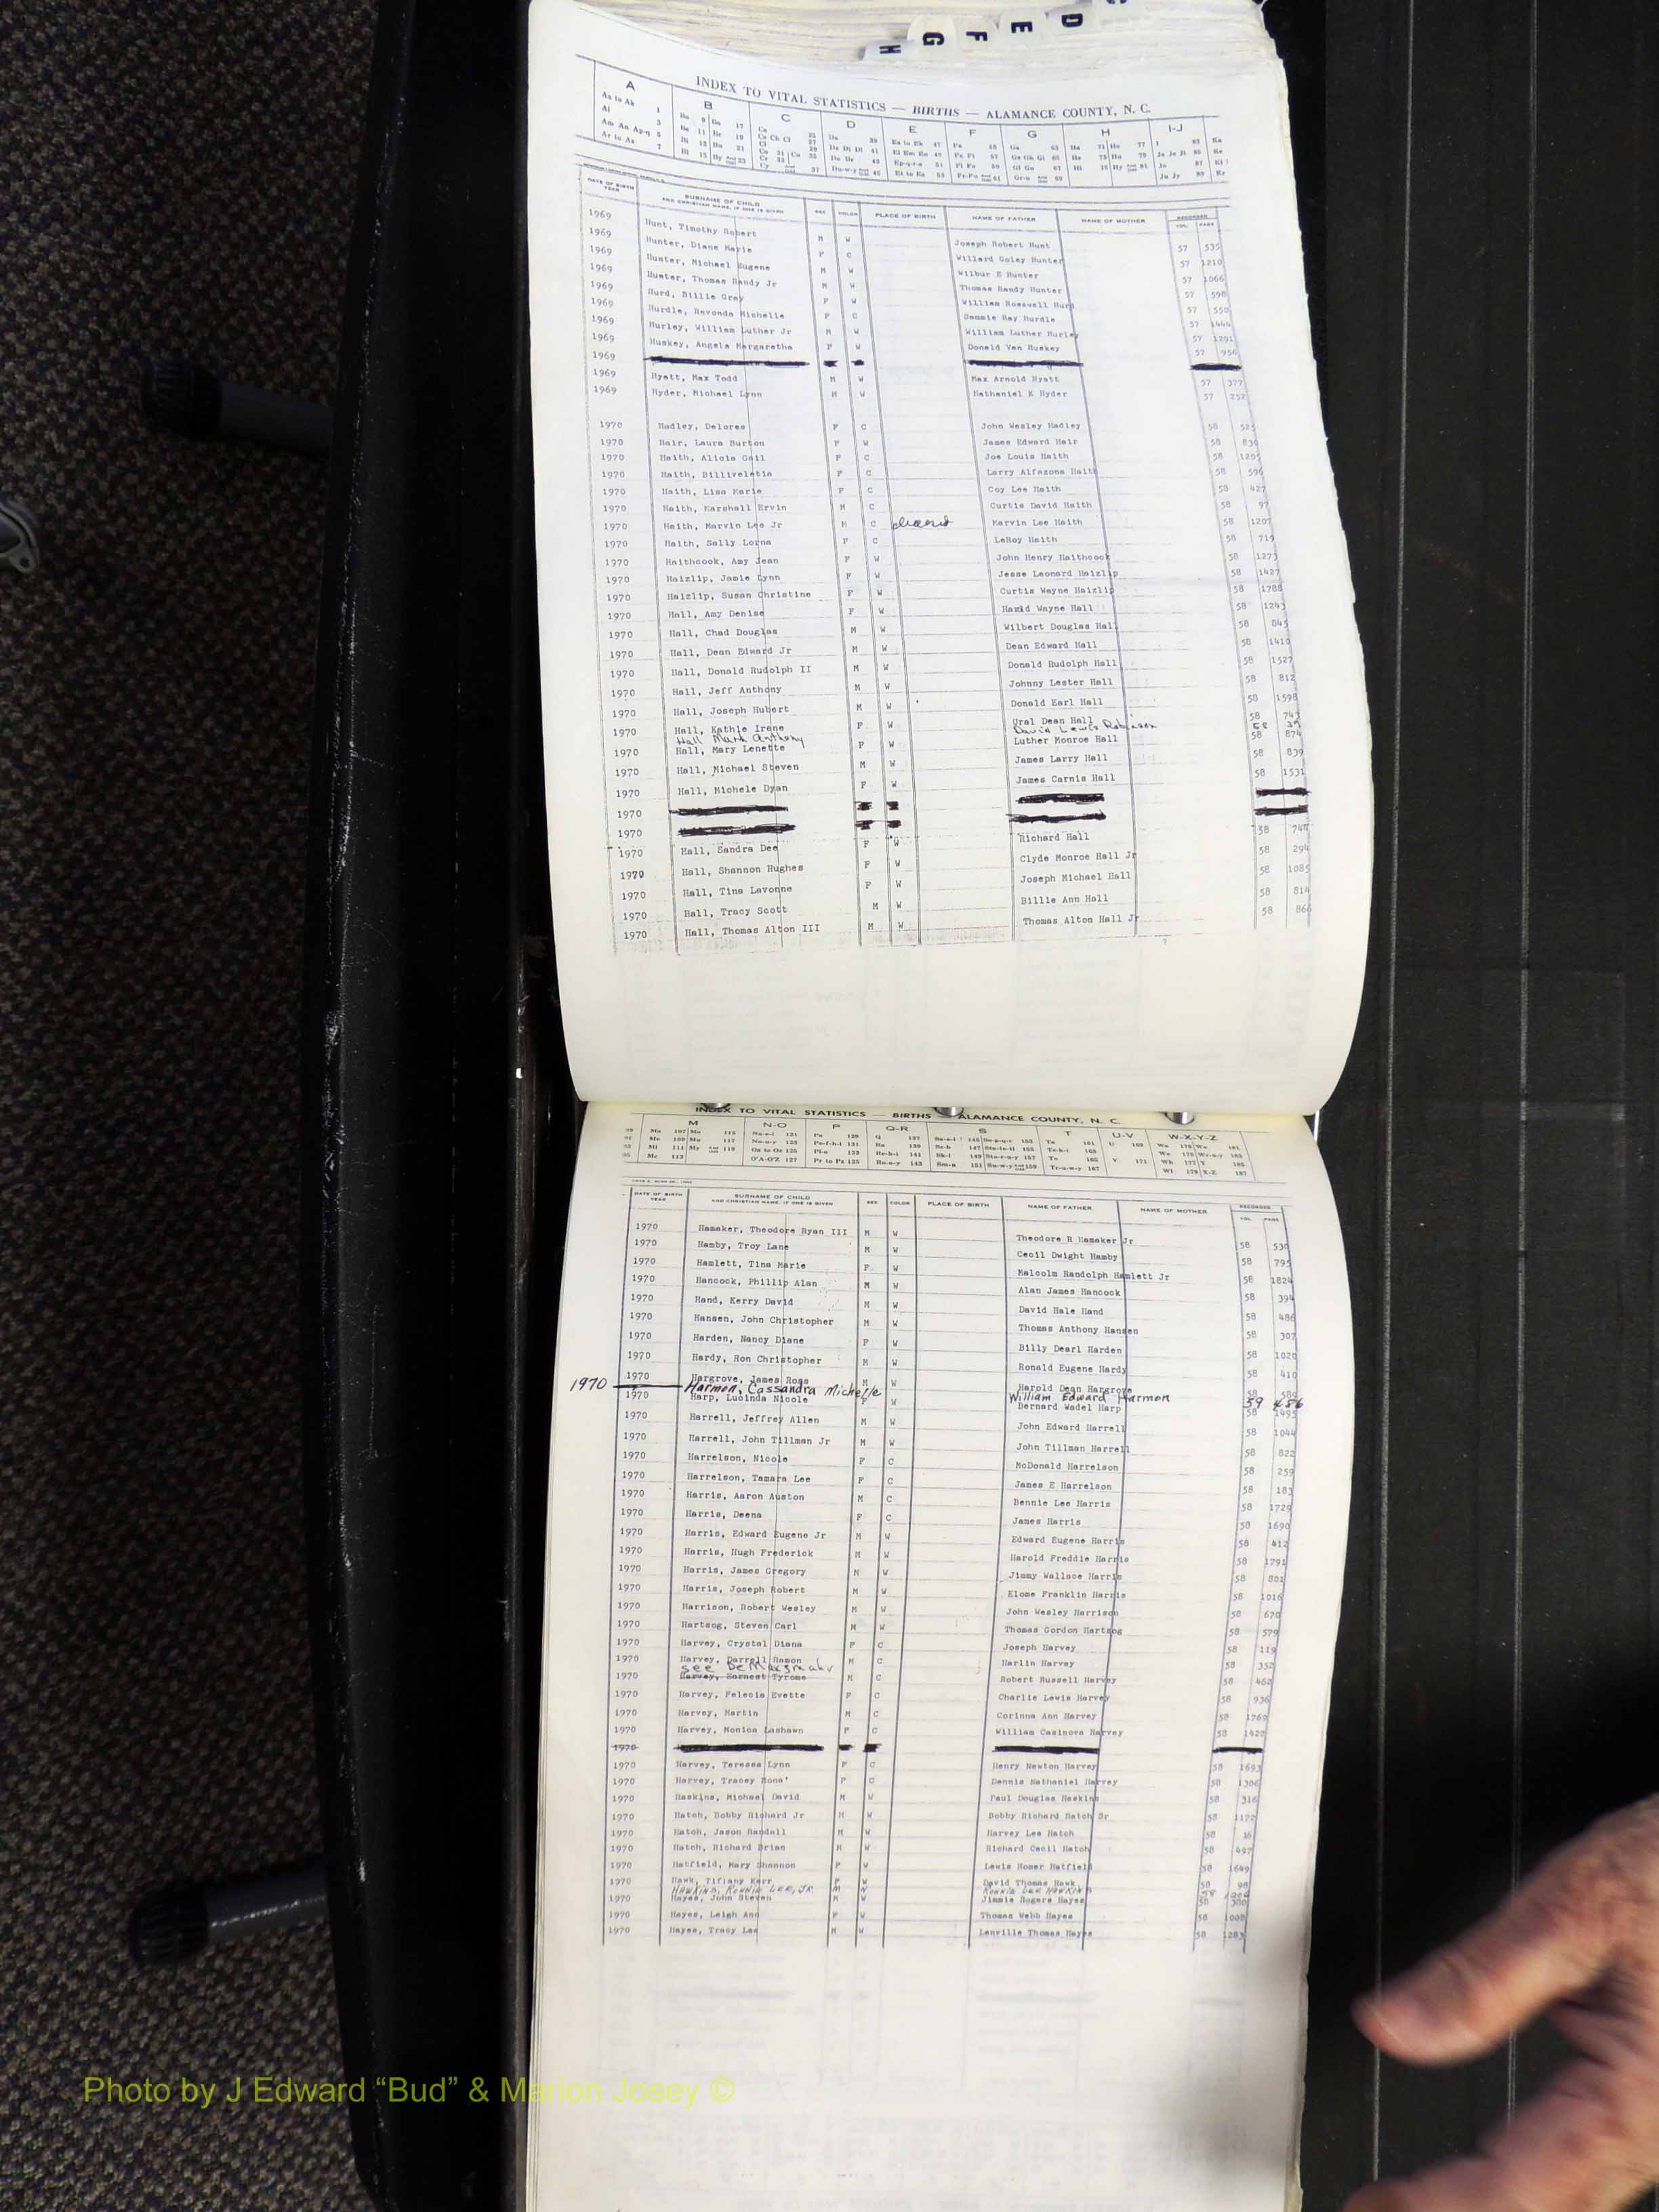 D
E
F
G
H
INDEX TO VITAL STATISTICS — BIRTHS — ALAMANCE COUNTY, N. C.
A B C D E F G H I-J
DATE OF BIRTH YEAR SURNAME OF CHILD AND CHRISTIAN NAME, IF ONE IS GIVEN SEX COLOR PLACE OF BIRTH NAME OF FATHER NAME OF MOTHER RECORDED VOL. PAGE
1969 Hunt, Timothy Robert M W Joseph Robert Hunt 57 535
1969 Hunter, Diane Marie F C Willard Goley Hunter 57 1210
1969 Hunter, Michael Eugene M W Wilbur E Hunter 57 1066
1969 Hunter, Thomas Handy Jr M W Thomas Handy Hunter 57 598
1969 Hurd, Billie Gray F W William Rosswell Hurd 57 550
1969 Hurdle, Revonda Michelle F C Sammie Ray Hurdle 57 1444
1969 Hurley, William Luther Jr M W William Luther Hurley 57 1291
1969 Huskey, Angela Margaretha F W Donald Van Huskey 57 956
1969
1969 Hyatt, Max Todd M W Max Arnold Hyatt 57 377
1969 Hyder, Michael Lynn M W Nathaniel E Hyder 57 252
1970 Hadley, Delores F C John Wesley Hadley 58 525
1970 Hair, Laura Burton F W James Edward Hair 58 830
1970 Haith, Alicia Gail F C Joe Louis Haith 58 1205
1970 Haith, Billiveletia F C Larry Alfazona Haith 58 596
1970 Haith, Lisa Marie F C Coy Lee Haith 58 427
1970 Haith, Marshall Ervin M C Curtis David Haith 58 97
1970 Haith, Marvin Lee Jr M C Marvin Lee Haith 58 1207
1970 Haith, Sally Lorna F C LeRoy Haith 58 719
1970 Haithcock, Amy Jean F W John Henry Haithcock 58 1273
1970 Haizlip, Jamie Lynn F W Jesse Leonard Haizlip 58 1427
1970 Haizlip, Susan Christine F W Curtis Wayne Haizlip 58 1788
1970 Hall, Amy Denise F W Harold Wayne Hall 58 1243
1970 Hall, Chad Douglas M W Wilbert Douglas Hall 58 845
1970 Hall, Dean Edward Jr M W Dean Edward Hall 58 1410
1970 Hall, Donald Rudolph II M W Donald Rudolph Hall 58 1527
1970 Hall, Jeff Anthony M W Johnny Lester Hall 58 812
1970 Hall, Joseph Hubert M W Donald Earl Hall 58 1598
1970 Hall, Kathie Irene F W Oral Dean Hall 58 743
Hall Mark Anthony David Lewis Robinson 58 39
1970 Hall, Mary Lenette F W Luther Monroe Hall 58 874
1970 Hall, Michael Steven M W James Larry Hall 58 839
1970 Hall, Michele Dyan F W James Carnis Hall 58 1531
1970
1970
1970 Hall, Sandra Dee F W Richard Hall 58
1970 Hall, Shannon Hughes F W Clyde Monroe Hall Jr 58 294
1970 Hall, Tina Lavonne F W Joseph Michael Hall 58 1085
1970 Hall, Tracy Scott M W Billie Ann Hall 58 814
1970 Hall, Thomas Alton III M W Thomas Alton Hall Jr 58 866
INDEX TO VITAL STATISTICS — BIRTHS — ALAMANCE COUNTY, N. C.
M N-O P Q-R S T U-V W-X-Y-Z
DATE OF BIRTH YEAR SURNAME OF CHILD AND CHRISTIAN NAME, IF ONE IS GIVEN SEX COLOR PLACE OF BIRTH NAME OF FATHER NAME OF MOTHER RECORDED VOL. PAGE
1970 Hamaker, Theodore Ryan III M W Theodore R Hamaker Jr 58 530
1970 Hamby, Troy Lane M W Cecil Dwight Hamby 58 795
1970 Hamlett, Tina Marie F W Malcolm Randolph Hamlett Jr 58 1824
1970 Hancock, Phillip Alan M W Alan James Hancock 58 394
1970 Hand, Kerry David M W David Hale Hand 58 486
1970 Hansen, John Christopher M W Thomas Anthony Hansen 58 307
1970 Harden, Nancy Diane F W Billy Dearl Harden 58 1020
1970 Hardy, Ron Christopher M W Ronald Eugene Hardy 58 410
1970 Hargrove, James Ross M W Harold Dean Hargrove 58 580
1970 Harmon, Cassandra Michelle William Edward Harmon 59 486
1970 Harp, Lucinda Nicole F W Bernard Wadel Harp 58 1495
1970 Harrell, Jeffrey Allen M W John Edward Harrell 58 1044
1970 Harrell, John Tillman Jr M W John Tillman Harrell 58 822
1970 Harrelson, Nicole F C McDonald Harrelson 58 259
1970 Harrelson, Tamara Lee F C James E Harrelson 58 183
1970 Harris, Aaron Auston M C Bennie Lee Harris 58 1729
1970 Harris, Deena F C James Harris 58 1690
1970 Harris, Edward Eugene Jr M W Edward Eugene Harris 58 412
1970 Harris, Hugh Frederick M W Harold Freddie Harris 58 1791
1970 Harris, James Gregory M W Jimmy Wallace Harris 58 801
1970 Harris, Joseph Robert M W Elome Franklin Harris 58 1016
1970 Harrison, Robert Wesley M W John Wesley Harrison 58 670
1970 Hartsog, Steven Carl M W Thomas Gordon Hartsog 58 579
1970 Harvey, Crystal Diana F C Joseph Harvey 58 119
1970 Harvey, Darrell Ramon M C Harlin Harvey 58 352
see
1970 Harvey, Earnest Tyrome M C Robert Russell Harvey 58 462
1970 Harvey, Felecia Evette F C Charlie Lewis Harvey 58 936
1970 Harvey, Martin M C Corinna Ann Harvey 58 1769
1970 Harvey, Monica Lashawn F C William Casinova Harvey 58 1422
1970
1970 Harvey, Teressa Lynn F C Henry Newton Harvey 58 1693
1970 Harvey, Tracey Rona' F C Dennis Nathaniel Harvey 58 1306
1970 Haskins, Michael David M W Paul Douglas Haskins 58 316
1970 Hatch, Bobby Richard Jr M W Bobby Richard Hatch Sr 58 1172
1970 Hatch, Jason Randall M W Harvey Lee Hatch 58 16
1970 Hatch, Richard Brian M W Richard Cecil Hatch 58 497
1970 Hatfield, Mary Shannon F W Lewis Homer Hatfield 58 1649
1970 Hawk, Tifiany Kerr F W David Thomas Hawk 58 98
HAWKINS, RONNIE LEE, JR. M W RONNIE LEE HAWKINS 58
1970 Hayes, John Steven M W Jimmie Rogers Hayes 58 300
1970 Hayes, Leigh Ann F W Thomas Webb Hayes 58 1008
1970 Hayes, Tracy Lee M W Lenville Thomas Hayes 58 1283
Photo by J Edward “Bud” & Marion Josey ©